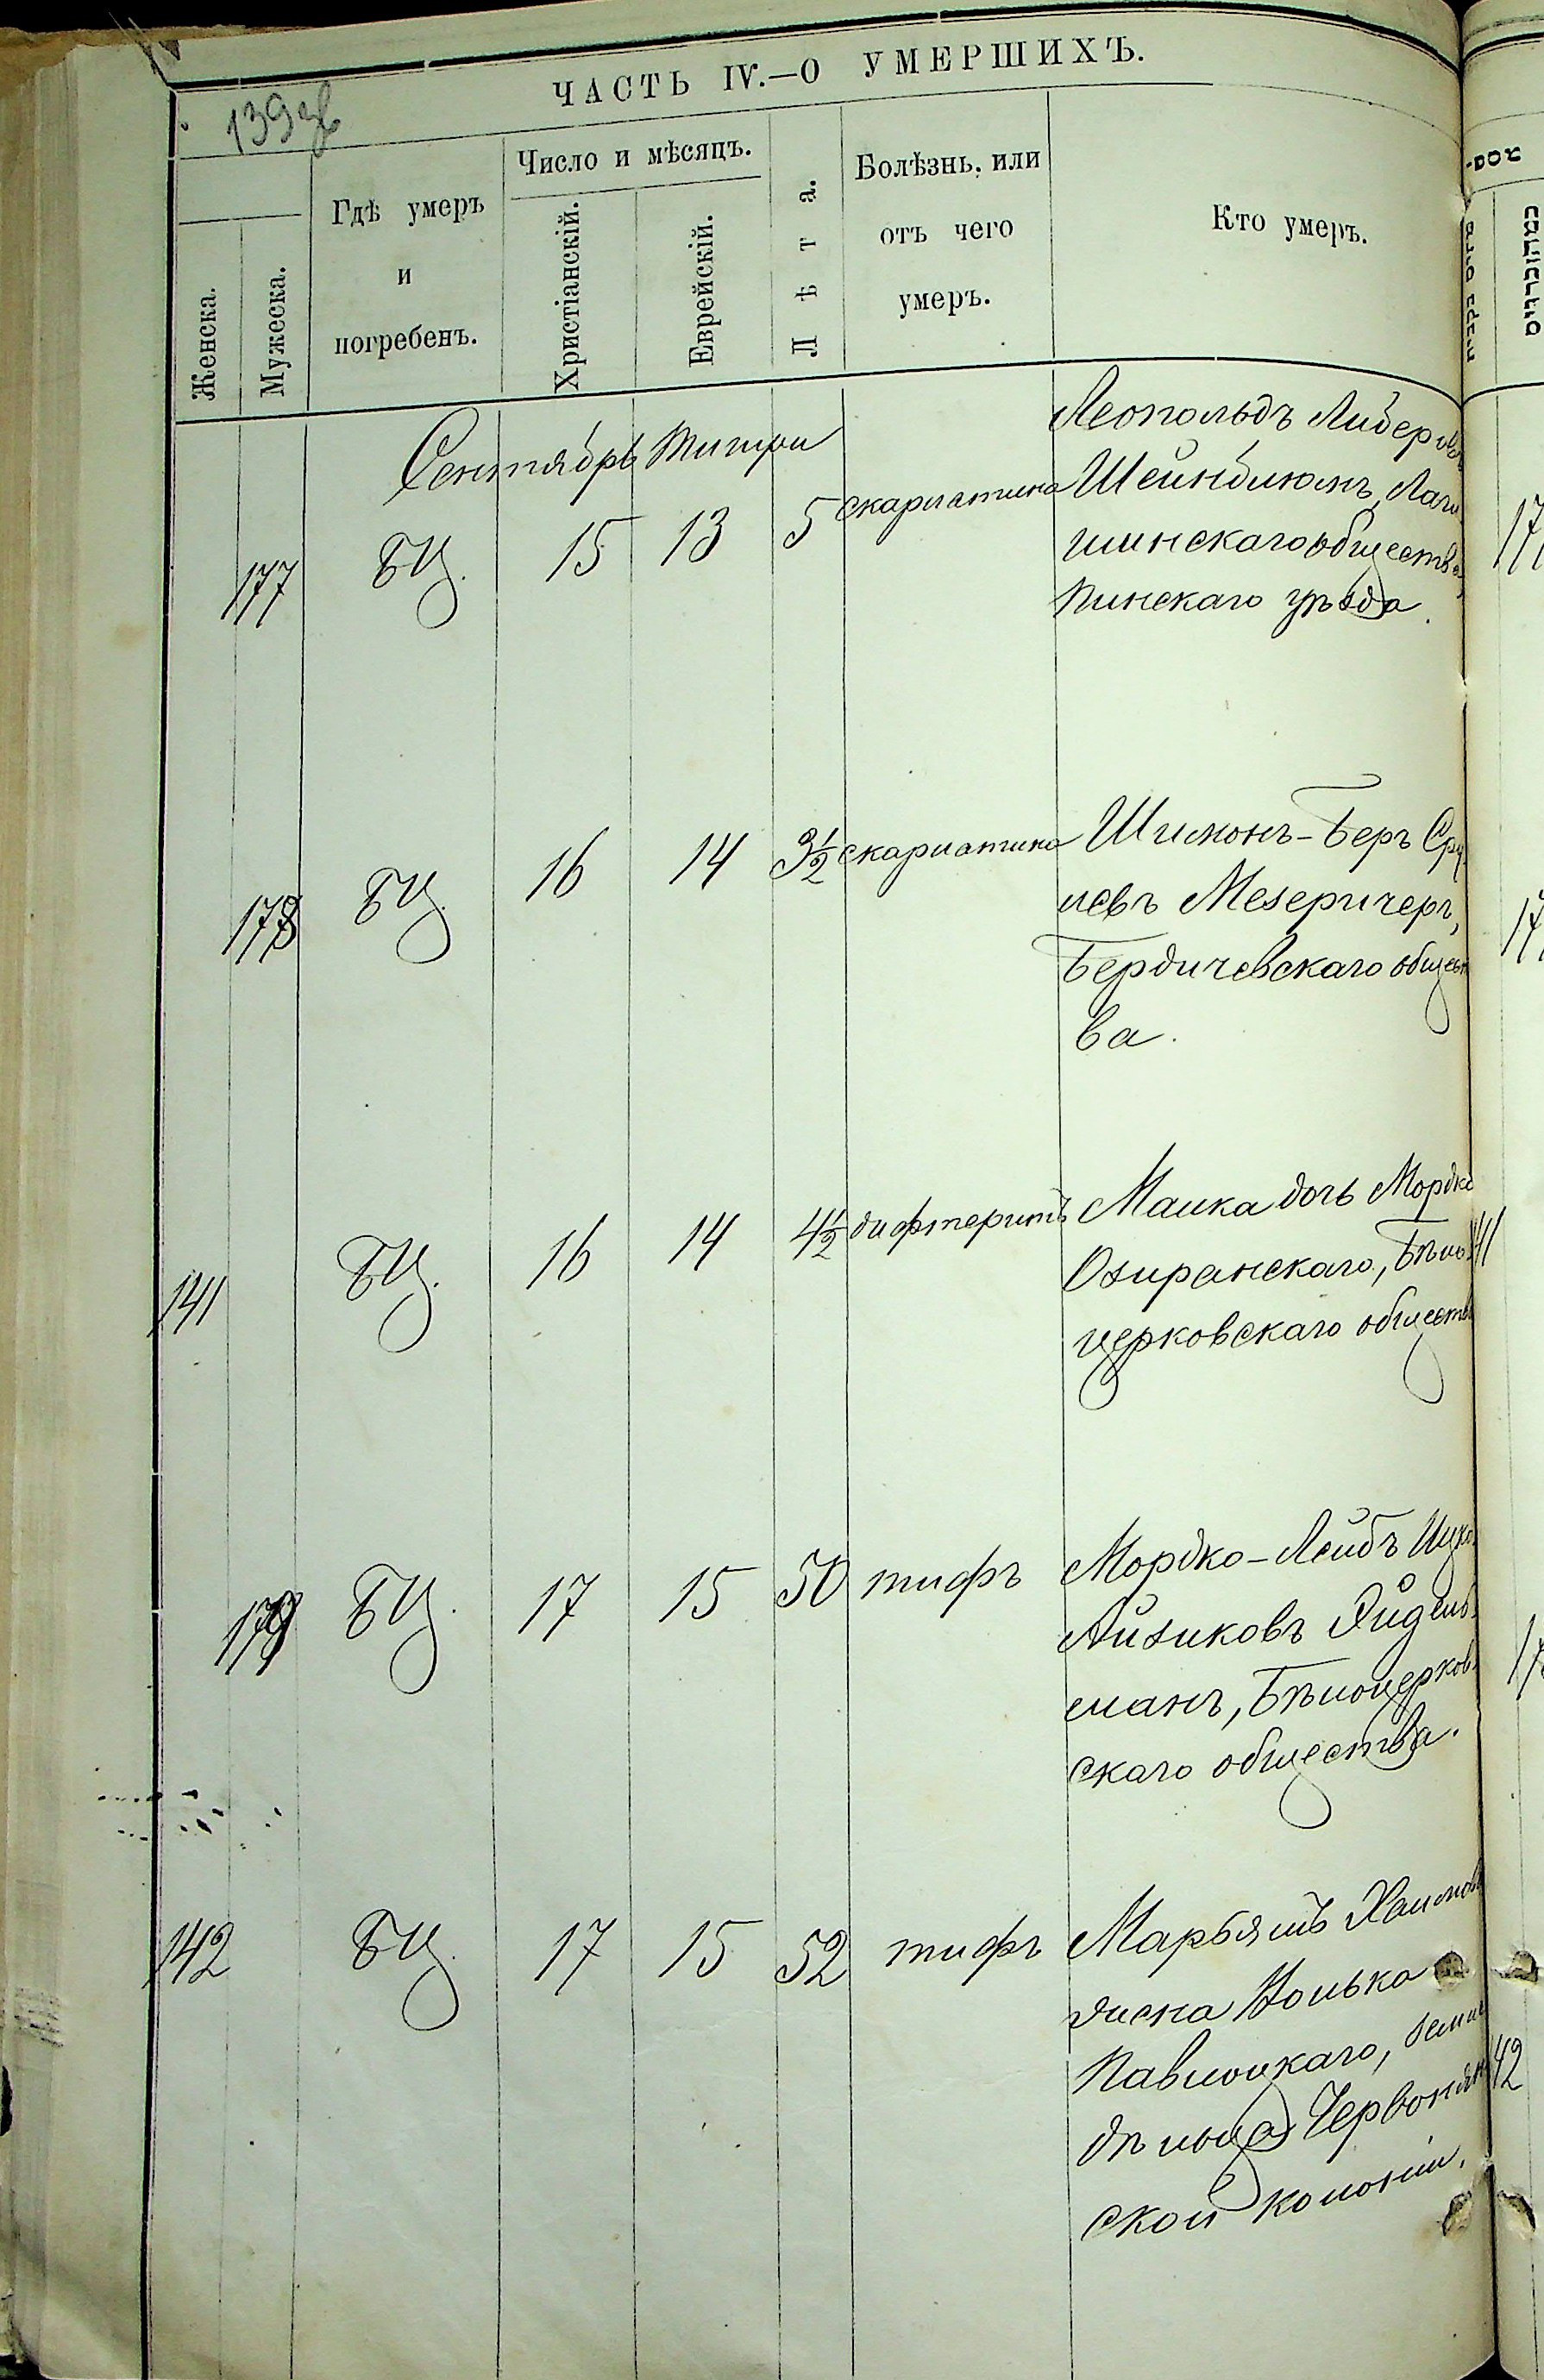 ЧАСТЬ IV.—О УМЕРШИХЪ.
139 зв
Женска.
Мужеска.
Гдѣ умеръ
и
погребенъ.
Число и мѣсяцъ.
Христіанскій.
Еврейскій.
Лѣта.
Болѣзнь, или
отъ чего
умеръ.
Кто умеръ.
Сентябрь Тишри
177 БЦ. 15 13 5 скарлатина Леопольдъ Либеровъ
Шейнблюмъ, Лаги
шинскаго общества,
Пинскаго уѣзда.
178 БЦ. 16 14 3½ скарлатина Шимонъ-Беръ Сру
левъ Мезеричеръ,
Бердичевскаго общест
ва.
141 БЦ. 16 14 4½ дифтеритъ Малка дочь Мордко
Озиранскаго, Бѣло
церковскаго обществ
179 БЦ. 17 15 50 тифъ Мордко-Лейбъ Ицко
Айзиковъ
манъ, Бѣлоцерков
скаго общества.
142 БЦ. 17 15 52 тифъ Марьямъ Хаимов
жена Волька
Павлоцкаго, земле
дѣльца Червонян
ской колоніи.